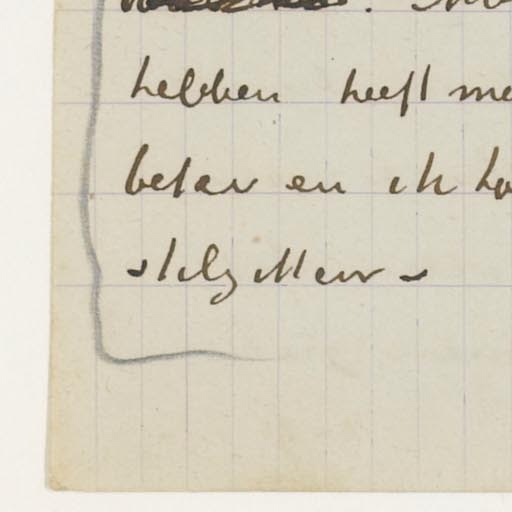 hebben heeft me
betar en ik ho
stilzitten -